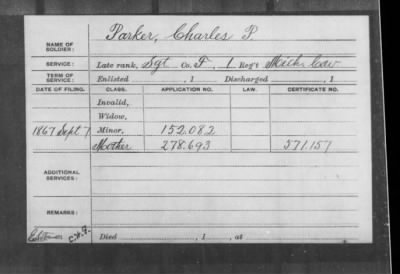 NAME OF SOLDIER: Parker, Charles P.
SERVICE: Late rank, Sgt Co. F, 1 Reg't Mich Cav
TERM OF SERVICE: Enlisted , 1 Discharged , 1
DATE OF FILING. CLASS. APPLICATION NO. LAW. CERTIFICATE NO.
Invalid,
Widow,
1867 Sept 7 Minor, 152.082
Mother 278.693 571.157
ADDITIONAL SERVICES:
REMARKS:
Died , 1 , at